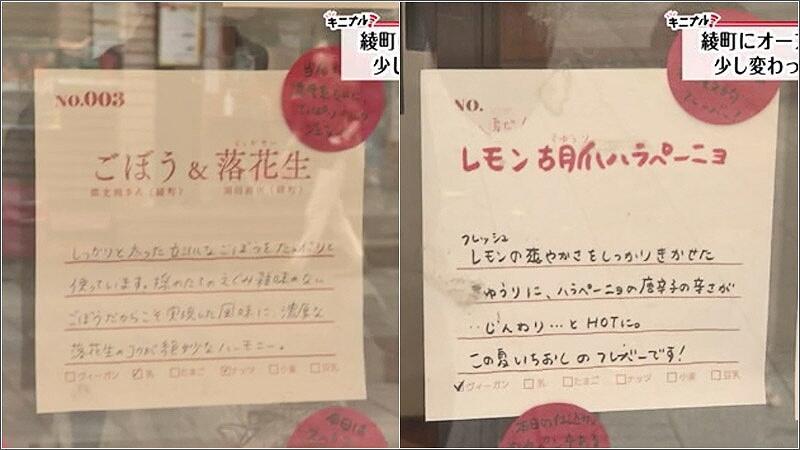 キニナル！
綾町
少し
No.003
ごぼう & 落花生
（綾町）
（綾町）
しっかりと太った立派なごぼうをたっぷりと
使っています。採れたてのえぐみ雑味のない
ごぼうだからこそ実現した風味に、濃厚な
落花生のコクが絶妙なハーモニー。
□ヴィーガン ☑乳 □たまご ☑ナッツ □小麦 □豆乳
本日は
キニナル！
綾町にオー
少し変わっ
NO.
きゅうり
レモン 胡瓜 ハラペーニョ
フレッシュ
レモンの爽やかさをしっかりきかせた
きゅうりに、ハラペーニョの唐辛子の辛さが
‥じんわり…と HOTに。
この夏いちおしのフレーバーです！
☑ヴィーガン □乳 □たまご □ナッツ □小麦 □豆乳